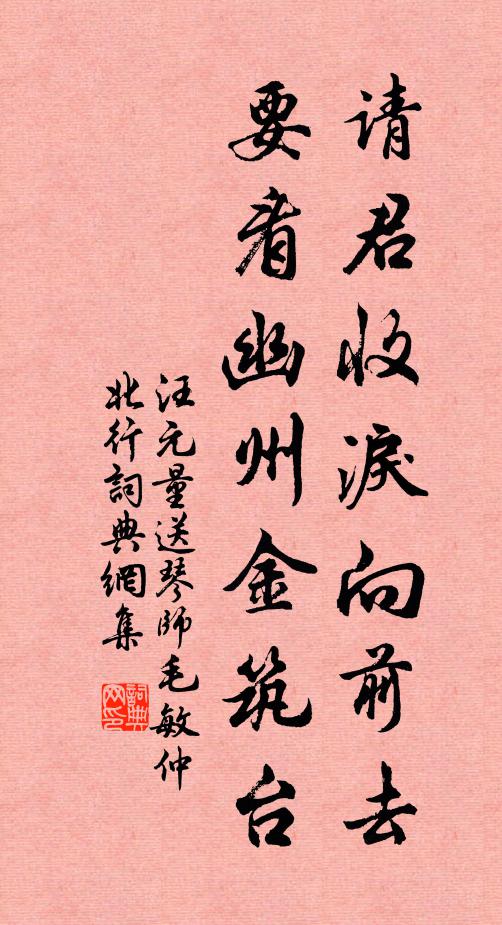 请君收淚向前去
要看幽州金筑台
汪元量送琴師毛敏仲
北行詞典網集
詞典
网印